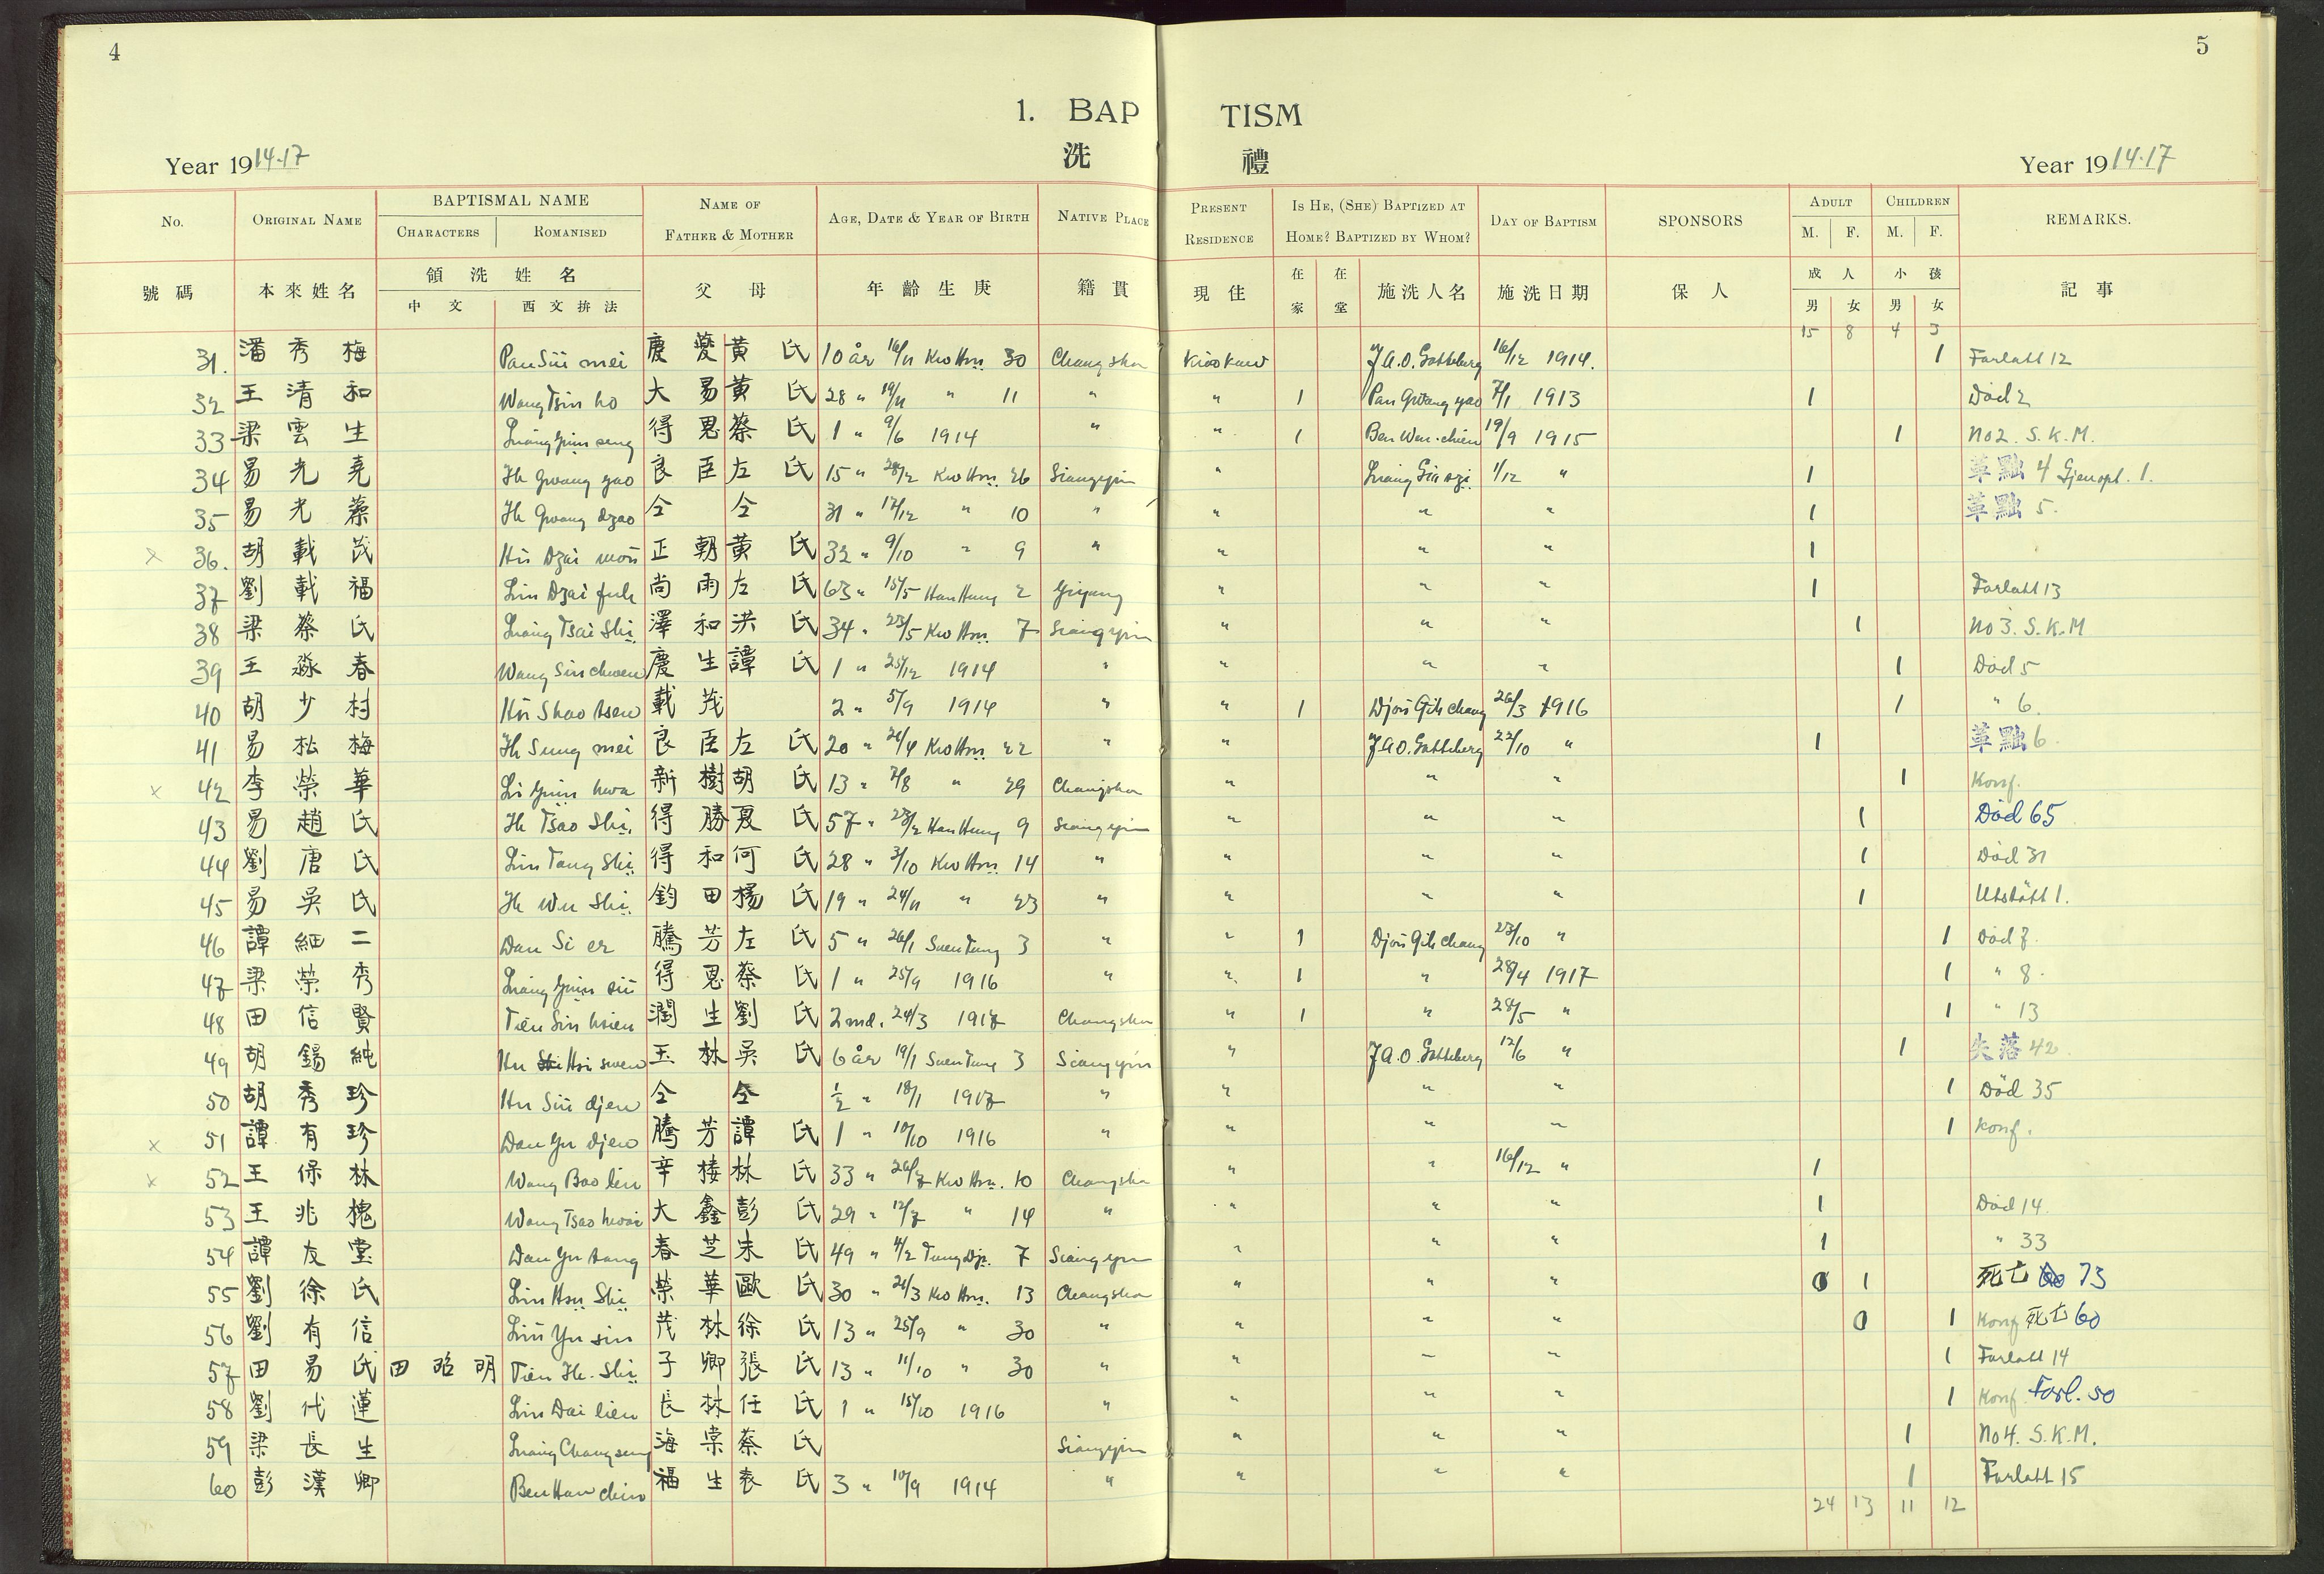 4
5
1. BAP TISM
洗 禮
Year 1914-17
Year 1914-17
No. ORIGINAL NAME BAPTISMAL NAME CHARACTERS ROMANISED NAME OF FATHER & MOTHER AGE, DATE & YEAR OF BIRTH NATIVE PLACE PRESENT RESIDENCE IS HE, (SHE) BAPTIZED AT HOME? BAPTIZED BY WHOM? DAY OF BAPTISM SPONSORS ADULT M. F. CHILDREN M. F. REMARKS.
號碼 本來姓名 領洗姓名 中文 西文拚法 父母 年齡生庚 籍貫 現住 在家 在堂 施洗人名 施洗日期 保人 成人 男 女 小孩 男 女 記事
15 8 4 5
31. 潘秀梅 Pan Siü mei 慶 黃氏 10 år 16/11 Kwo Hsü 30 Changsha Kiao Kuw J.A.O. Gotteberg 16/12 1914. 1 Forlatt 12
32 王清和 Wang Tsin ho 大易 黃氏 28 " 19/11 " 11 " " 1 Pan Gwang yao 7/1 1913 1 Död 2
33 梁雲生 Liang Yuin seng 得恩 蔡氏 1 " 9/6 1914 " " 1 Ben Wen-chien 19/9 1915 1 No 2. S.K.M.
34 易光堯 Ih Gwang yao 良臣 左氏 15 " 28/12 Kwo Hsü 26 Siangyin " Liang Gia dzi 1/12 " 1 革黜 4 Gjenopt. 1.
35 易光藻 Ih Gwang dzao 仝 仝 31 " 12/12 " 10 " " " " 1 革黜 5.
x 36. 胡載茂 Hu Dzai mou 正朝 黃氏 32 " 9/10 " 9 " " " " 1
37 劉載福 Liu Dzai fuh 尚雨 左氏 63 " 15/5 Han Hung 2 Yiyang " " " 1 Forlatt 13
38 梁蔡氏 Liang Tsai Shi 澤和 洪氏 34 " 23/5 Kwo Hsü 7 Siangyin " " " 1 No 3. S.K.M
39 王淼春 Wang Sin chwen 慶生 譚氏 1 " 25/12 1914 " " " " 1 Död 5
40 胡少村 Hu Shao tsen 載茂 2 " 5/9 1914 " " 1 Djou Gih chang 26/3 1916 1 " 6.
41 易松梅 Ih Sung mei 良臣 左氏 20 " 26/4 Kwo Hsü 22 " " J.A.O. Gotteberg 22/10 " 1 革黜 6.
x 42 李榮華 Li Yuin hwa 新樹 胡氏 13 " 2/8 " 29 Changsha " " " 1 Konf.
43 易趙氏 Ih Tsao Shi 得勝 夏氏 57 " 23/2 Han Hung 9 Siangyin " " " 1 Död 65
44 劉唐氏 Liu Tang Shi 得和 何氏 28 " 3/10 Kwo Hsü 14 " " " " 1 Död 31
45 易吳氏 Ih Wu Shi 鈞田 楊氏 19 " 24/11 " 23 " " " " 1 Utstött 1.
46 譚細二 Dan Si er 騰芳 左氏 5 " 26/1 Suen Tung 3 " " 1 Djou Gih chang 23/10 " 1 Död 7.
47 梁榮秀 Liang Yuin siü 得恩 蔡氏 1 " 25/9 1916 " " 1 " 28/4 1917 1 " 8.
48 田信賢 Tien Sin hsien 潤生 劉氏 2 md. 24/3 1917 Changsha " 1 " 28/5 " 1 " 13
49 胡錫純 Hu Hsi swen 玉林 吳氏 6 år 19/1 Suen Tung 3 Siangyin " J.A.O. Gotteberg 12/6 " 1 失落 42
50 胡秀珍 Hu Siü djen 仝 仝 1/2 " 18/1 1917 " " " " 1 Död 35
x 51 譚有珍 Dan Yu djen 騰芳 譚氏 1 " 10/10 1916 " " " " 1 Konf.
x 52 王保林 Wang Bao lin 辛接 林氏 33 " 26/7 Kwo Hsü. 10 Changsha " " 16/12 " 1
53 王兆槐 Wang Tsao hwai 大鑫 彭氏 29 " 12/7 " 14 " " " " 1 Död 14.
54 譚友堂 Dan Yu tang 春芝 朱氏 49 " 4/2 Tung Dji. 7 Siangyin " " " 1 " 33
55 劉徐氏 Liu Hsü Shi 榮華 歐氏 30 " 21/3 Kwo Hsü. 13 Changsha " " " 1 死亡 73
56 劉有信 Liu Yu sin 茂林 徐氏 13 " 25/9 " 30 " " " " 1 Konf 死亡 60
57 田易氏 田昭明 Tien Ih-Shi 子卿 張氏 13 " 11/10 " 30 " " " " 1 Forlatt 14
58 劉代蓮 Liu Dai lien 長林 任氏 1 " 15/10 1916 " " " " 1 Konf. Forl. 50
59 梁長生 Liang Chang seng 海棠 蔡氏 Siangyin " " " 1 No 4. S.K.M.
60 彭漢卿 Ben Han chin 福生 袁氏 3 " 10/9 1914 " " " " 1 Forlatt 15
24 13 11 12